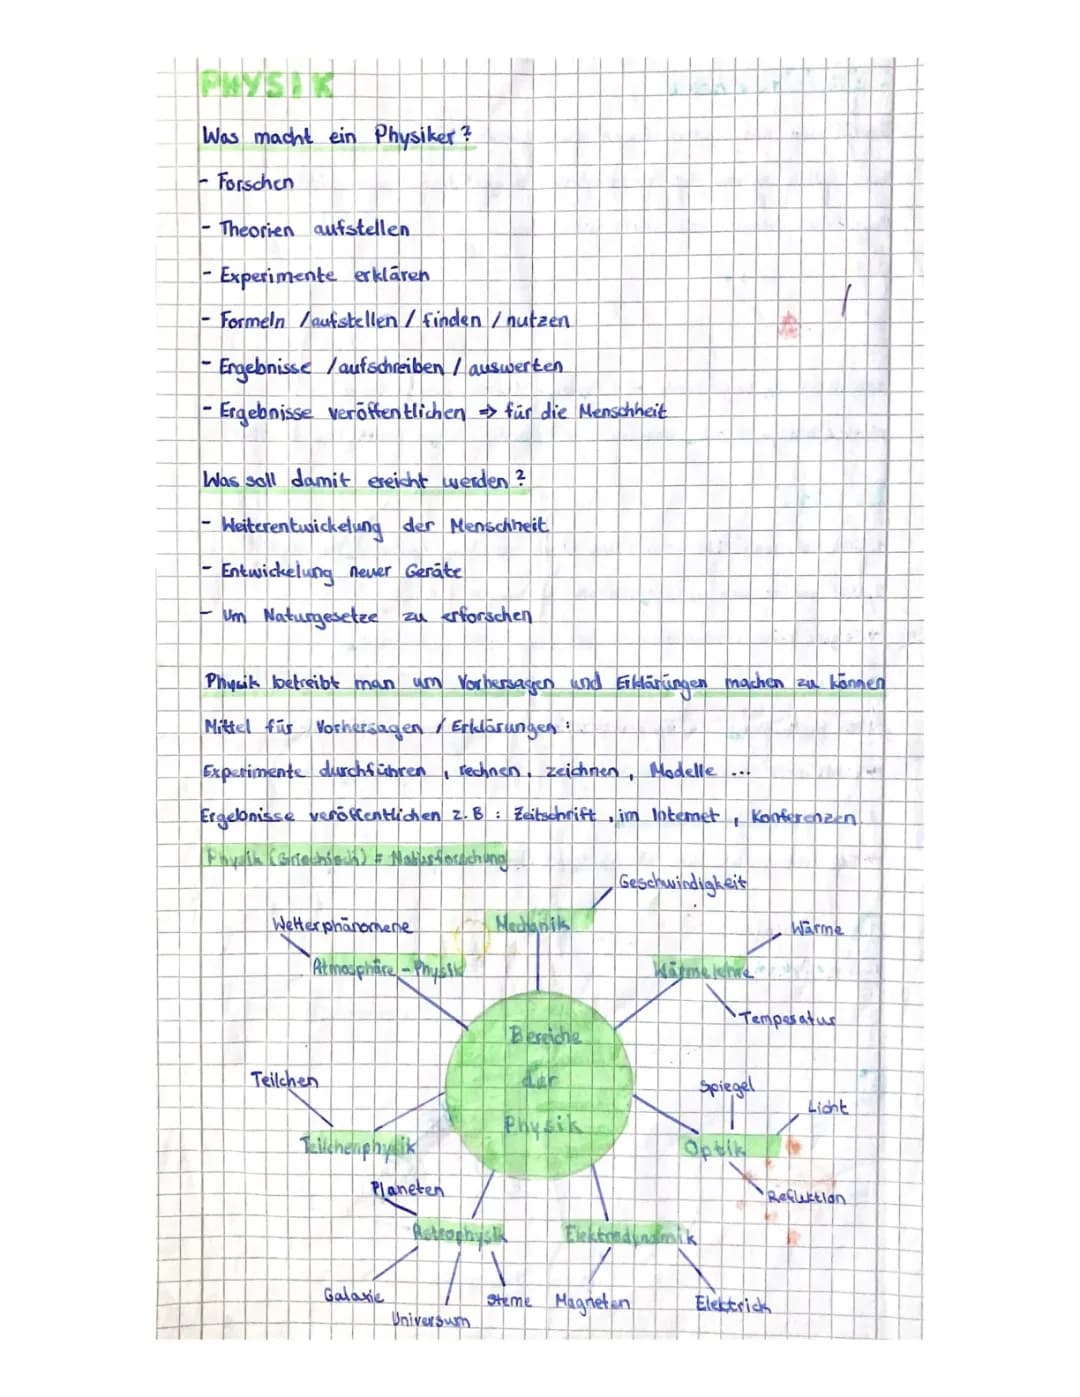 PHYSIK
Was macht ein Physiker?
- Forschen
- Theorien aufstellen
- Experimente erklären
- Formeln /aufstellen / finden / nutzen
- Ergebnisse /aufschreiben / auswerten
- Ergebnisse veröffentlichen => für die Menschheit
Was soll damit ereicht werden?
- Weiterentwickelung der Menschheit
- Entwickelung neuer Geräte
- um Naturgesetze zu erforschen
Physik betreibt man um Vorhersagen und Erklärungen machen zu können
Mittel für Vorhersagen / Erklärungen:
Experimente durchführen, rechnen, zeichnen, Modelle ...
Ergebnisse veröffentlichen z.B: Zeitschrift, im Internet, Konferenzen
Physik (Griechisch) = Naturforschung
Geschwindigkeit
Wetterphänomene
Mechanik
Wärme
Atmosphäre-Physik
Wärmelehre
Temperatur
Bereiche
der
Physik
Teilchen
Spiegel
Licht
Teilchenphysik
Optik
Planeten
Reflektion
Astrophysik
Elektrodynamik
Galaxie
Universum
Sterne
Magneten
Elektrick